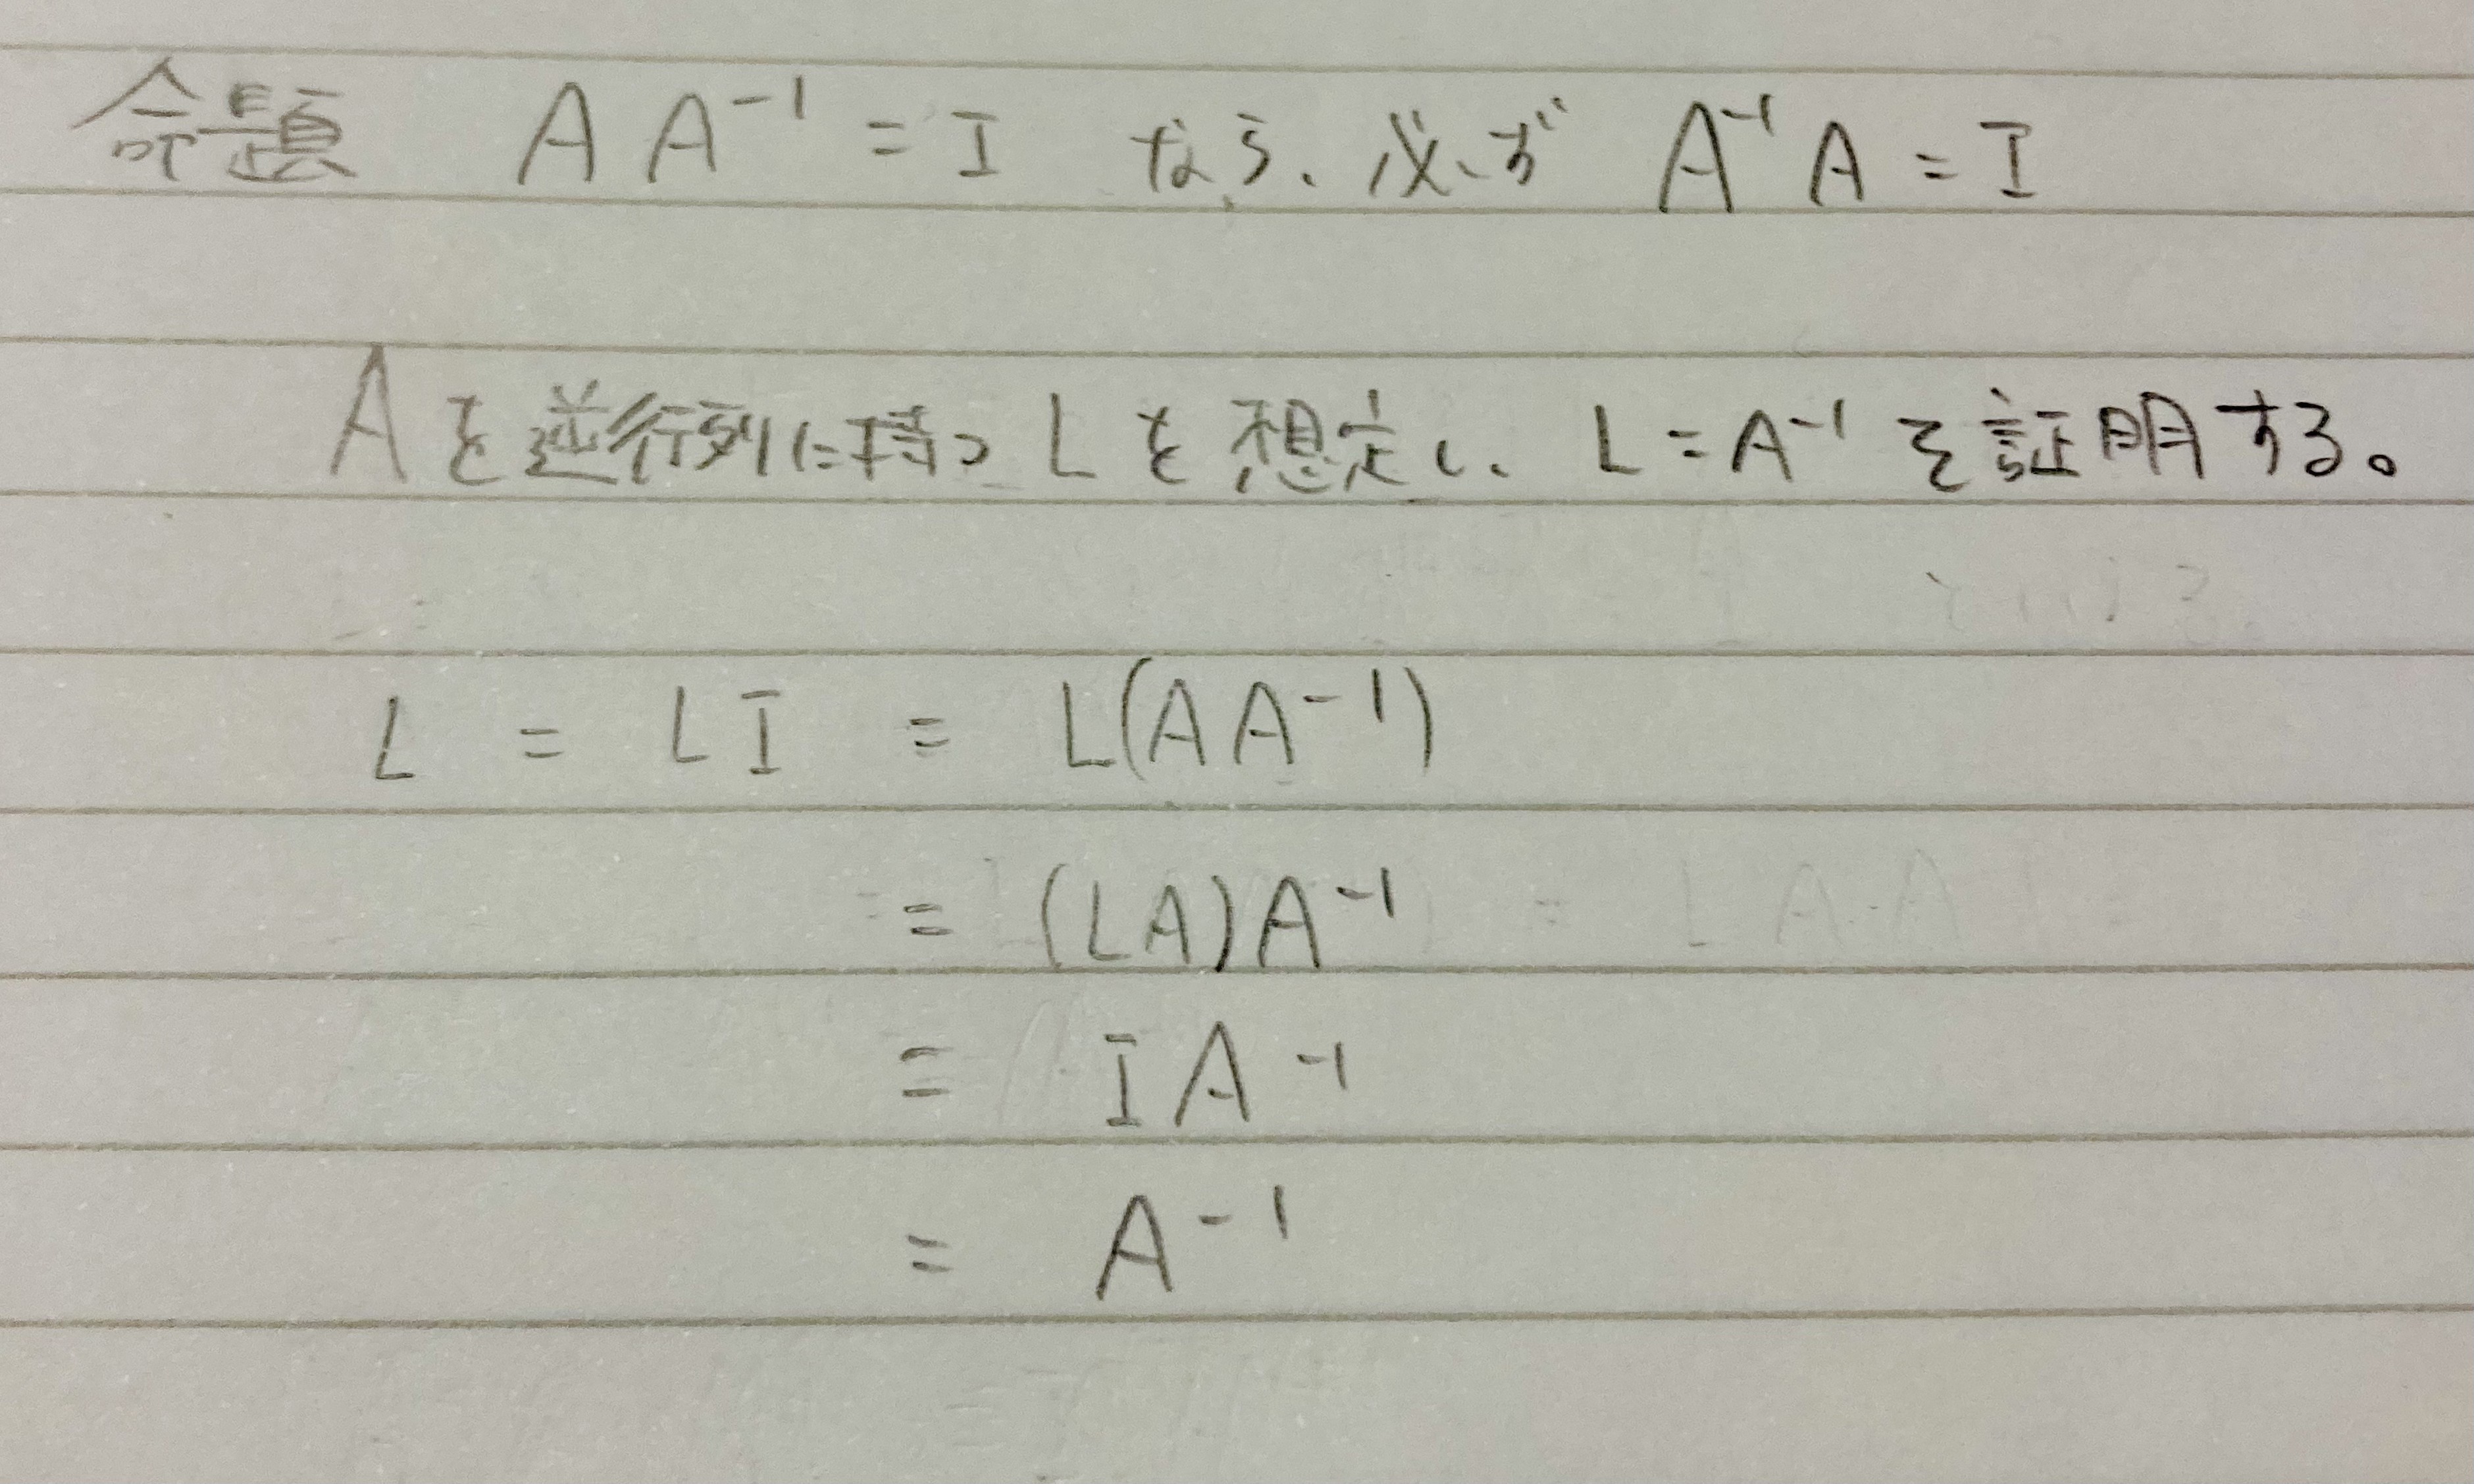 命題 A A⁻¹ = I なら、必ず A⁻¹ A = I
Aを逆行列に持つ Lを想定し、 L = A⁻¹ を証明する。
L = L I = L(A A⁻¹)
= (L A) A⁻¹
= I A⁻¹
= A⁻¹